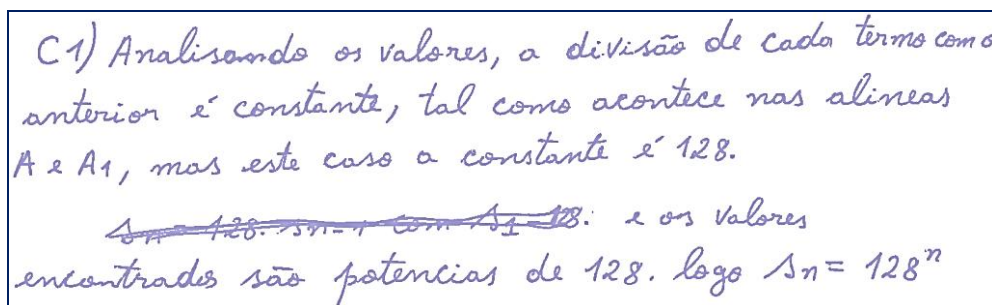 C1) Analisando os valores, a divisão de cada termo com o
anterior é constante, tal como acontece nas alineas
A e A1, mas este caso a constante é 128.
sn = 128. sn-1 com s1 = 128. e os valores
encontrados são potencias de 128. logo sn = 128ⁿ